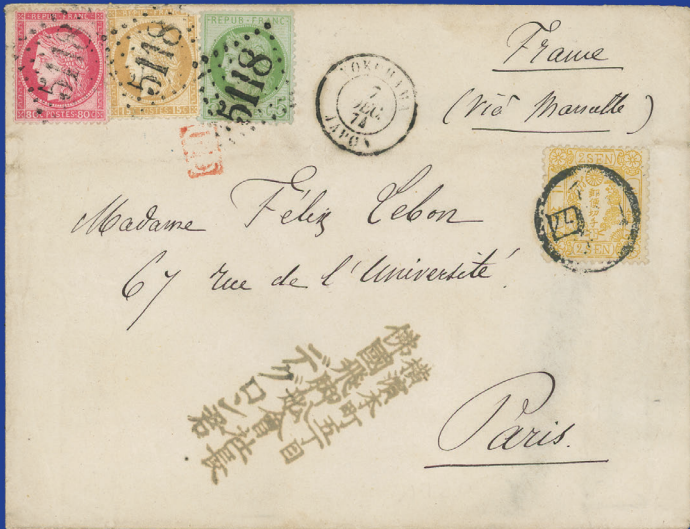 REPUB. FRANC.
80 POSTES 80
5118
REPUB. FRANC.
POSTES 15c
5118
REPUB. FRANC.
5118
YOKOHAMA
7
DEC.
74
JAPON
PD
France
(Viâ Marseille)
2 SEN
2 SEN
Madame Félix Lebon
67 rue de l'Université
Paris.
横濱本町五丁目
佛國飛脚舩會社長
デクロン君